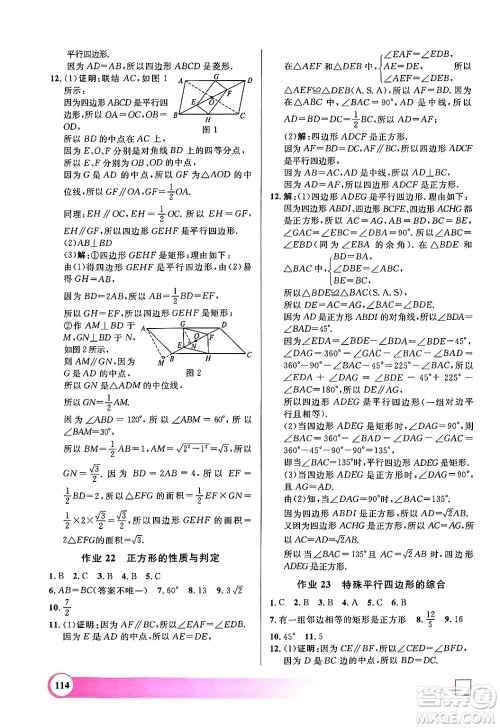 平行四边形.
因为AD=AB,所以四边形ABCD是菱形.
12.(1)证明:联结AC,如图1
所示:
因为四边形ABCD是平行四边
形,所以OA=OC,OB=OD.
所以BD在AC的中点,
因为E、O、F分别是对角线BD上
的四等分点,
所以E、F分别为OB、OD的中点,
因为G是AD的中点,
所以GF为△AOD的中位线.
所以GF∥OA,GF=1/2OA.
图1
同理:EH∥OC,EH=1/2OC.
所以EH=GF,EH∥GF.
所以四边形GEHF是平行四边形.
(2)AB⊥BD
(3)解:①四边形GEHF是矩形.理由如下:
由(1)得四边形GEHF是平行四边形,由(2)易得
GH=AB.
因为BD=2AB,所以AB=1/2BD=EF.
所以GH=EF.所以四边形GEHF是矩形;
②作AM⊥BD于
M,GN⊥BD于N,
则AM∥GN.因为
G是AD的中点,
所以GN是△ADM的中位线.
图2
所以GN=1/2AM.因为∠ABD=60°,所以
∠BAM=30°,
所以BM=1/2AB=1.所以AM=√2²-1²=√3.所以
GN=√3/2.因为BD=4,所以EF=1/2BD=2,
所以△EFG的面积=1/2EF×GN=
1/2×2×√3/2=√3/2.所以四边形GEHF的面积=√3.
作业22 正方形的性质与判定
1.B 2.C 3.A 4.B 5.C
6.AB=BC(答案不唯一) 7.60° 8.13 9.3√2
10.7/2
11.(1)证明:因为AF∥BC,所以∠AFE=∠DBE.
∠EAF=∠EDB
在△AEF和△DEB中, AE=DE
∠AEF=∠DEB
所以△AEF≌△DEB(A.S.A),所以AF=DB.
因为在△ABC中,∠BAC=90°,AD是中线,所以
AD=BD=DC=1/2BC.所以AD=AF.
(2)解:四边形ADCF是正方形.
因为AF=BD=DC,AF∥BC,
所以四边形ADCF是平行四边形.
因为AB=AC,AD是中线,所以AD⊥BC.
因为AD=AF,所以四边形ADCF是正方形.
12.解:(1)四边形ADEG是平行四边形.理由如下:
因为四边形ABDI、四边形BCFE、四边形ACHG都是正
方形,所以AC=AG,AB=BD,BC=BE,
∠GAC=∠EBC=∠DBA=90°.
所以∠ABC=∠EBD(∠EBA的余角).在△BDE和
△BAC中,
BD=BA
∠DBE=∠ABC
BE=BC
所以△BDE≌△BAC.
所以DE=AC=AG,∠BDE=∠BAC.
因为AD是正方形ABDI的对角线,所以∠BDA=
∠BAD=45°.
因为∠EDA=∠BDE-∠BDA=∠BDE-45°,
∠DAG=360°-∠GAC-∠BAC-∠BAD=
360°-90°-∠BAC-45°=225°-∠BAC,所以
∠EDA+∠DAG=∠BDE-45°+225°-
∠BAC=180°,所以DE∥AG.
所以四边形ADEG是平行四边形(一组对边平
行且相等).
(2)当四边形ADEG是矩形时,∠DAG=90°.
则∠BAC=360°-∠BAD-∠DAG-∠GAC=
360°-45°-90°-90°=135°.
即当∠BAC=135°时,平行四边形ADEG是矩形;
(3)当四边形ADEG是正方形时,∠DAG=90°,
且AG=AD.
由(2)知,当∠DAG=90°时,∠BAC=135°.
因为四边形ABDI是正方形,所以AD=√2AB.
因为四边形ACHG是正方形,所以AC=AG.
所以AC=√2AB.
所以当∠BAC=135°且AC=√2AB时,四边形
ADEG是正方形.
作业23 特殊平行四边形的综合
1.C 2.A 3.C 4.B 5.B 6.A
7.有一组邻边相等的矩形是正方形 8.12/5 9.16
10.45° 11.5
12.(1)证明:因为CE∥BF,所以∠DCE=∠DBF,
因为D是BC中点,所以CD=BD.
114